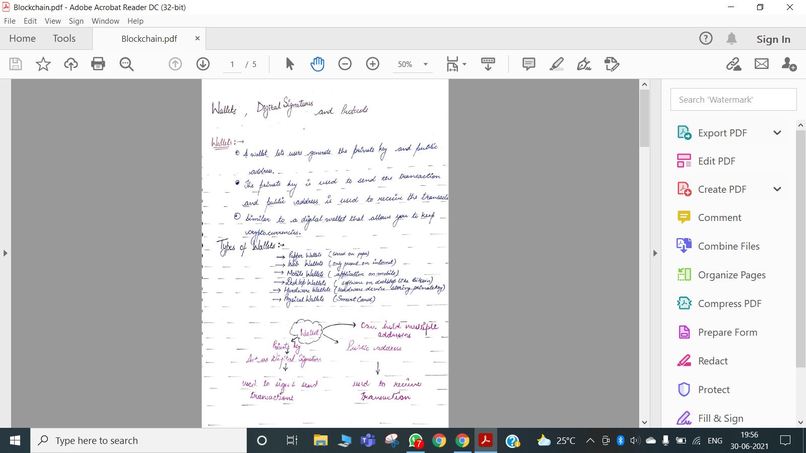 Blockchain.pdf - Adobe Acrobat Reader DC (32-bit)
File Edit View Sign Window Help
Home Tools Blockchain.pdf × Sign In
1 / 5 50%
Wallets, Digital Signatures and Protocols
Wallets:→
A wallet lets users generate the private key and public
address.
The private key is used to send the transaction
and public address is used to receive the transacti
Similar to a digital wallet that allows you to keep
cryptocurrencies.
Types of Wallets:-
→ Paper Wallets (Stored on paper)
→ Web Wallets (only present on internet)
→ Mobile Wallets (application on mobile)
→ Desktop Wallets (software on desktop
→ Hardware Wallets (hardware device private key)
→ Physical Wallets (Smart Card)
Wallet
Can hold multiple
addresses
Private key
Public address
Digital Signature
used to sign & send
transactions
used to receive
transaction
Search 'Watermark'
Export PDF
Edit PDF
Create PDF
Comment
Combine Files
Organize Pages
Compress PDF
Prepare Form
Redact
Protect
Fill & Sign
Type here to search
25°C ENG 19:56
30-06-2021